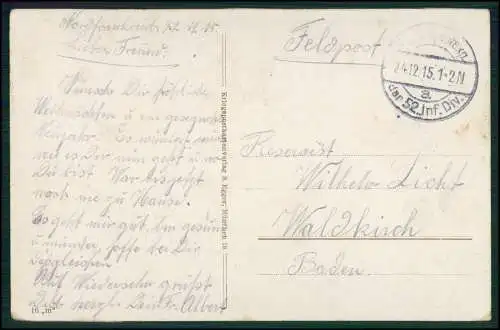 Nordfrankreich 22.12.15.
Lieber Freund!
Wünsche Dir fröhliche
Weihnachten u ein gesegnetes
Neujahr. Es wundert mich
wie es Dir geht u wo
Du bist. War bis jetzt
noch nie zu Hause.
Es geht mir gut, bin gesund
u munter, hoffe bei Dir
desgleichen
Auf Wiedersehn grüßt
Dich herzl. Dein Fr. Albert
16 „m“
Feldpost
24.12.15.1-2N
a.
der 52.Inf.Div.
Reservist
Wilhelm Licht
Waldkirch
Baden.